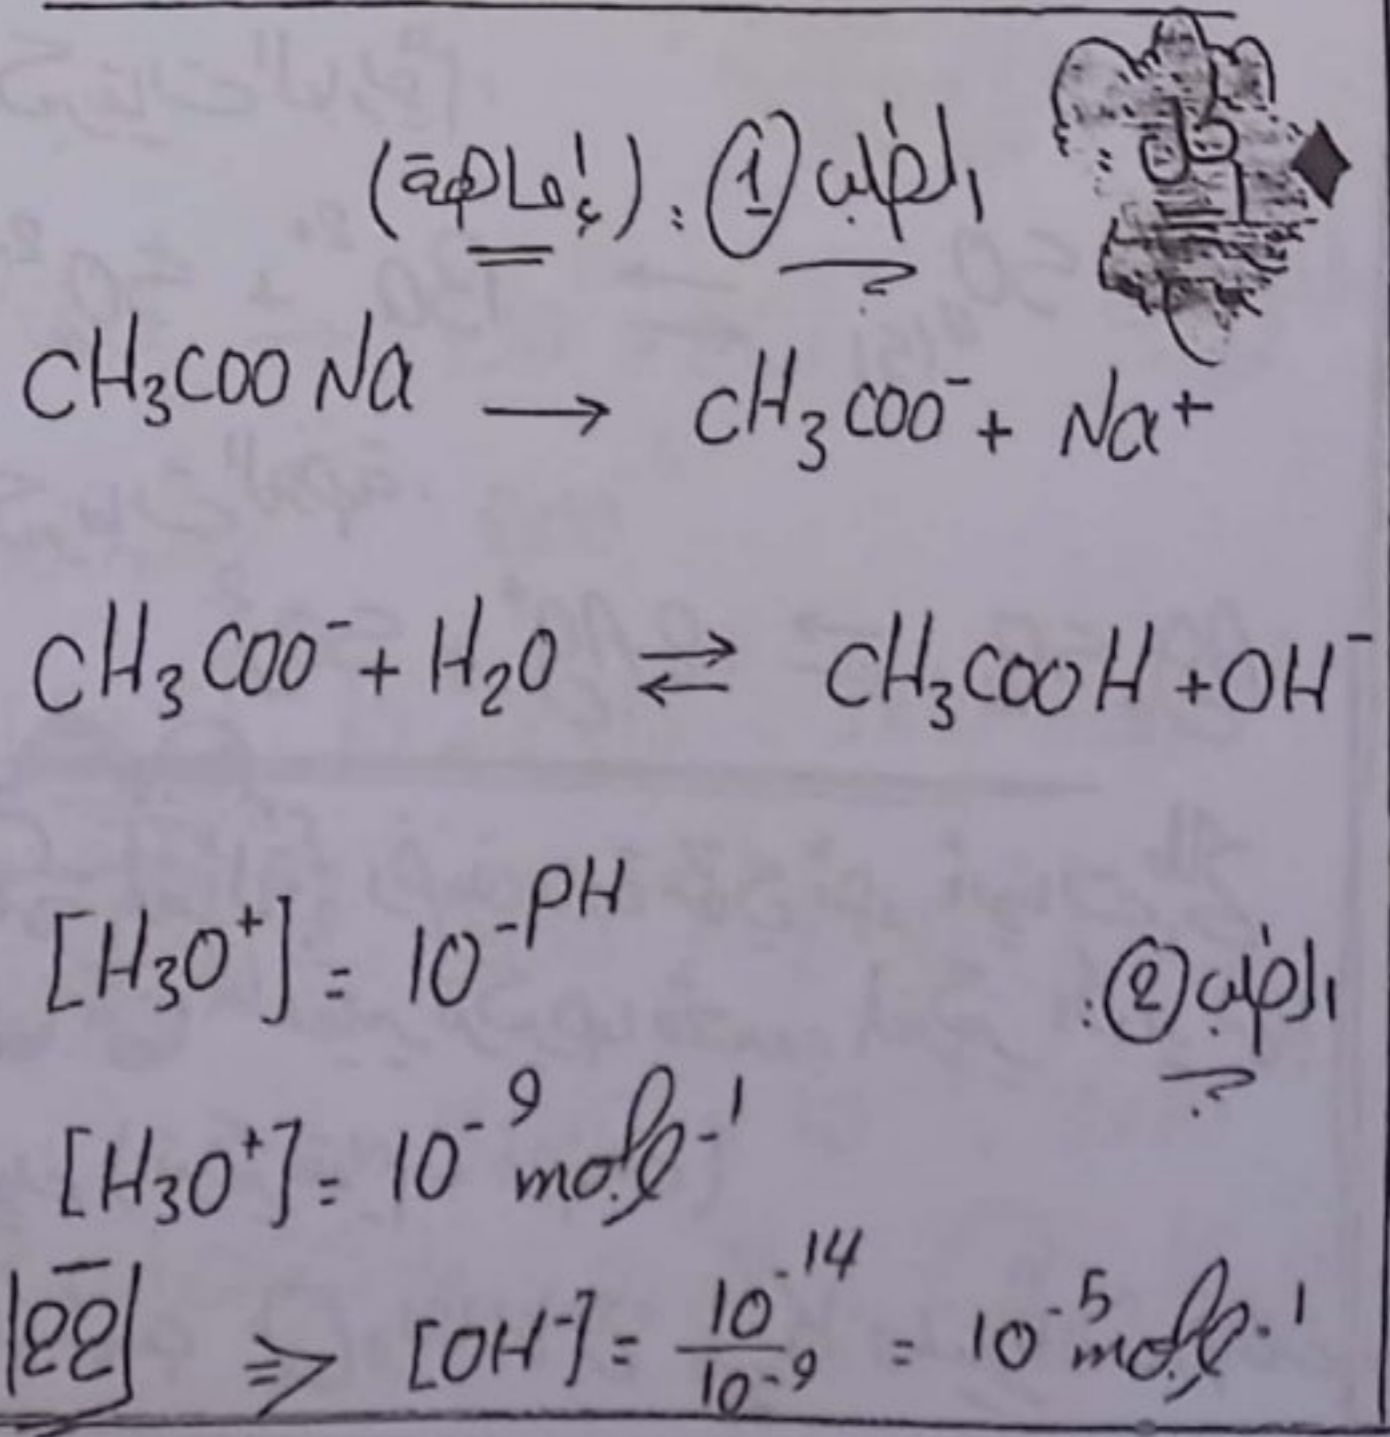 الطلب ① : (إماهة)
CH₃COONa → CH₃COO⁻ + Na⁺
CH₃COO⁻ + H₂O ⇌ CH₃COOH + OH⁻
الطلب ② :
[H₃O⁺] = 10⁻ᵖᴴ
[H₃O⁺] = 10⁻⁹ mol.l⁻¹
⇒ [OH⁻] = 10⁻¹⁴ / 10⁻⁹ = 10⁻⁵ mol.l⁻¹